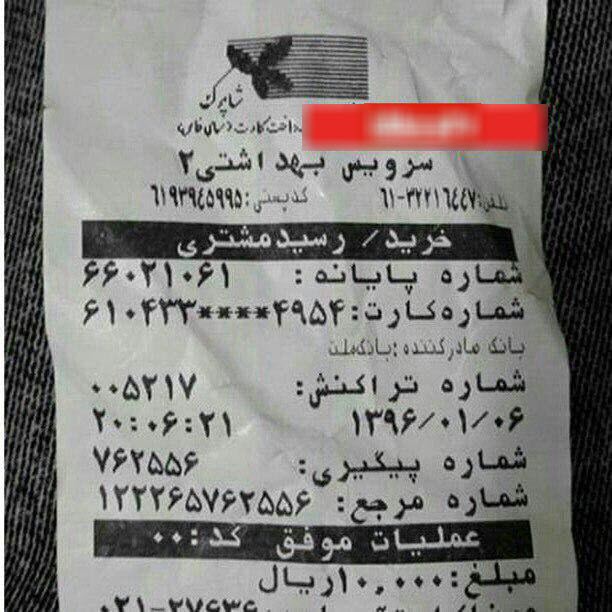 شاپرک
سرویس بهداشتی ۲
تلفن: ۰۶۱-۳۲۲۱۶۴۴۷ کدپستی: ۶۱۹۳۹۴۵۹۹۵
خرید/ رسید مشتری
شماره پایانه: ۶۶۰۲۱۰۶۱
شماره کارت: ۶۱۰۴۳۳****۴۹۵۴
بانک صادرکننده: بانک ملت
شماره تراکنش: ۰۰۵۲۱۷
۱۳۹۶/۰۱/۰۶ ۲۰:۰۶:۲۱
شماره پیگیری: ۷۶۲۵۵۶
شماره مرجع: ۱۲۲۲۶۵۷۶۲۵۵۶
عملیات موفق کد: ۰۰
مبلغ: ۱۰,۰۰۰ریال